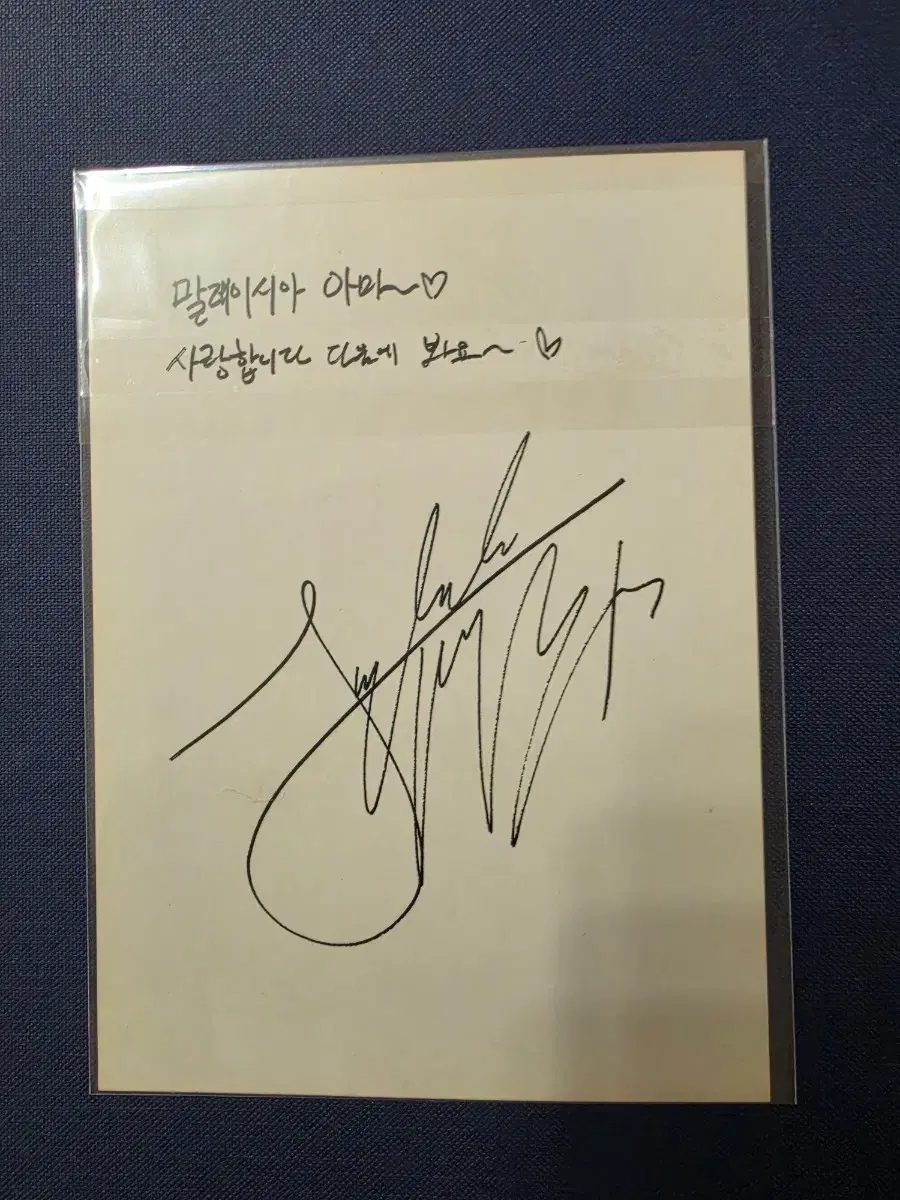 말레이시아 아마~♡
사랑합니다 다음에 봐요~♡